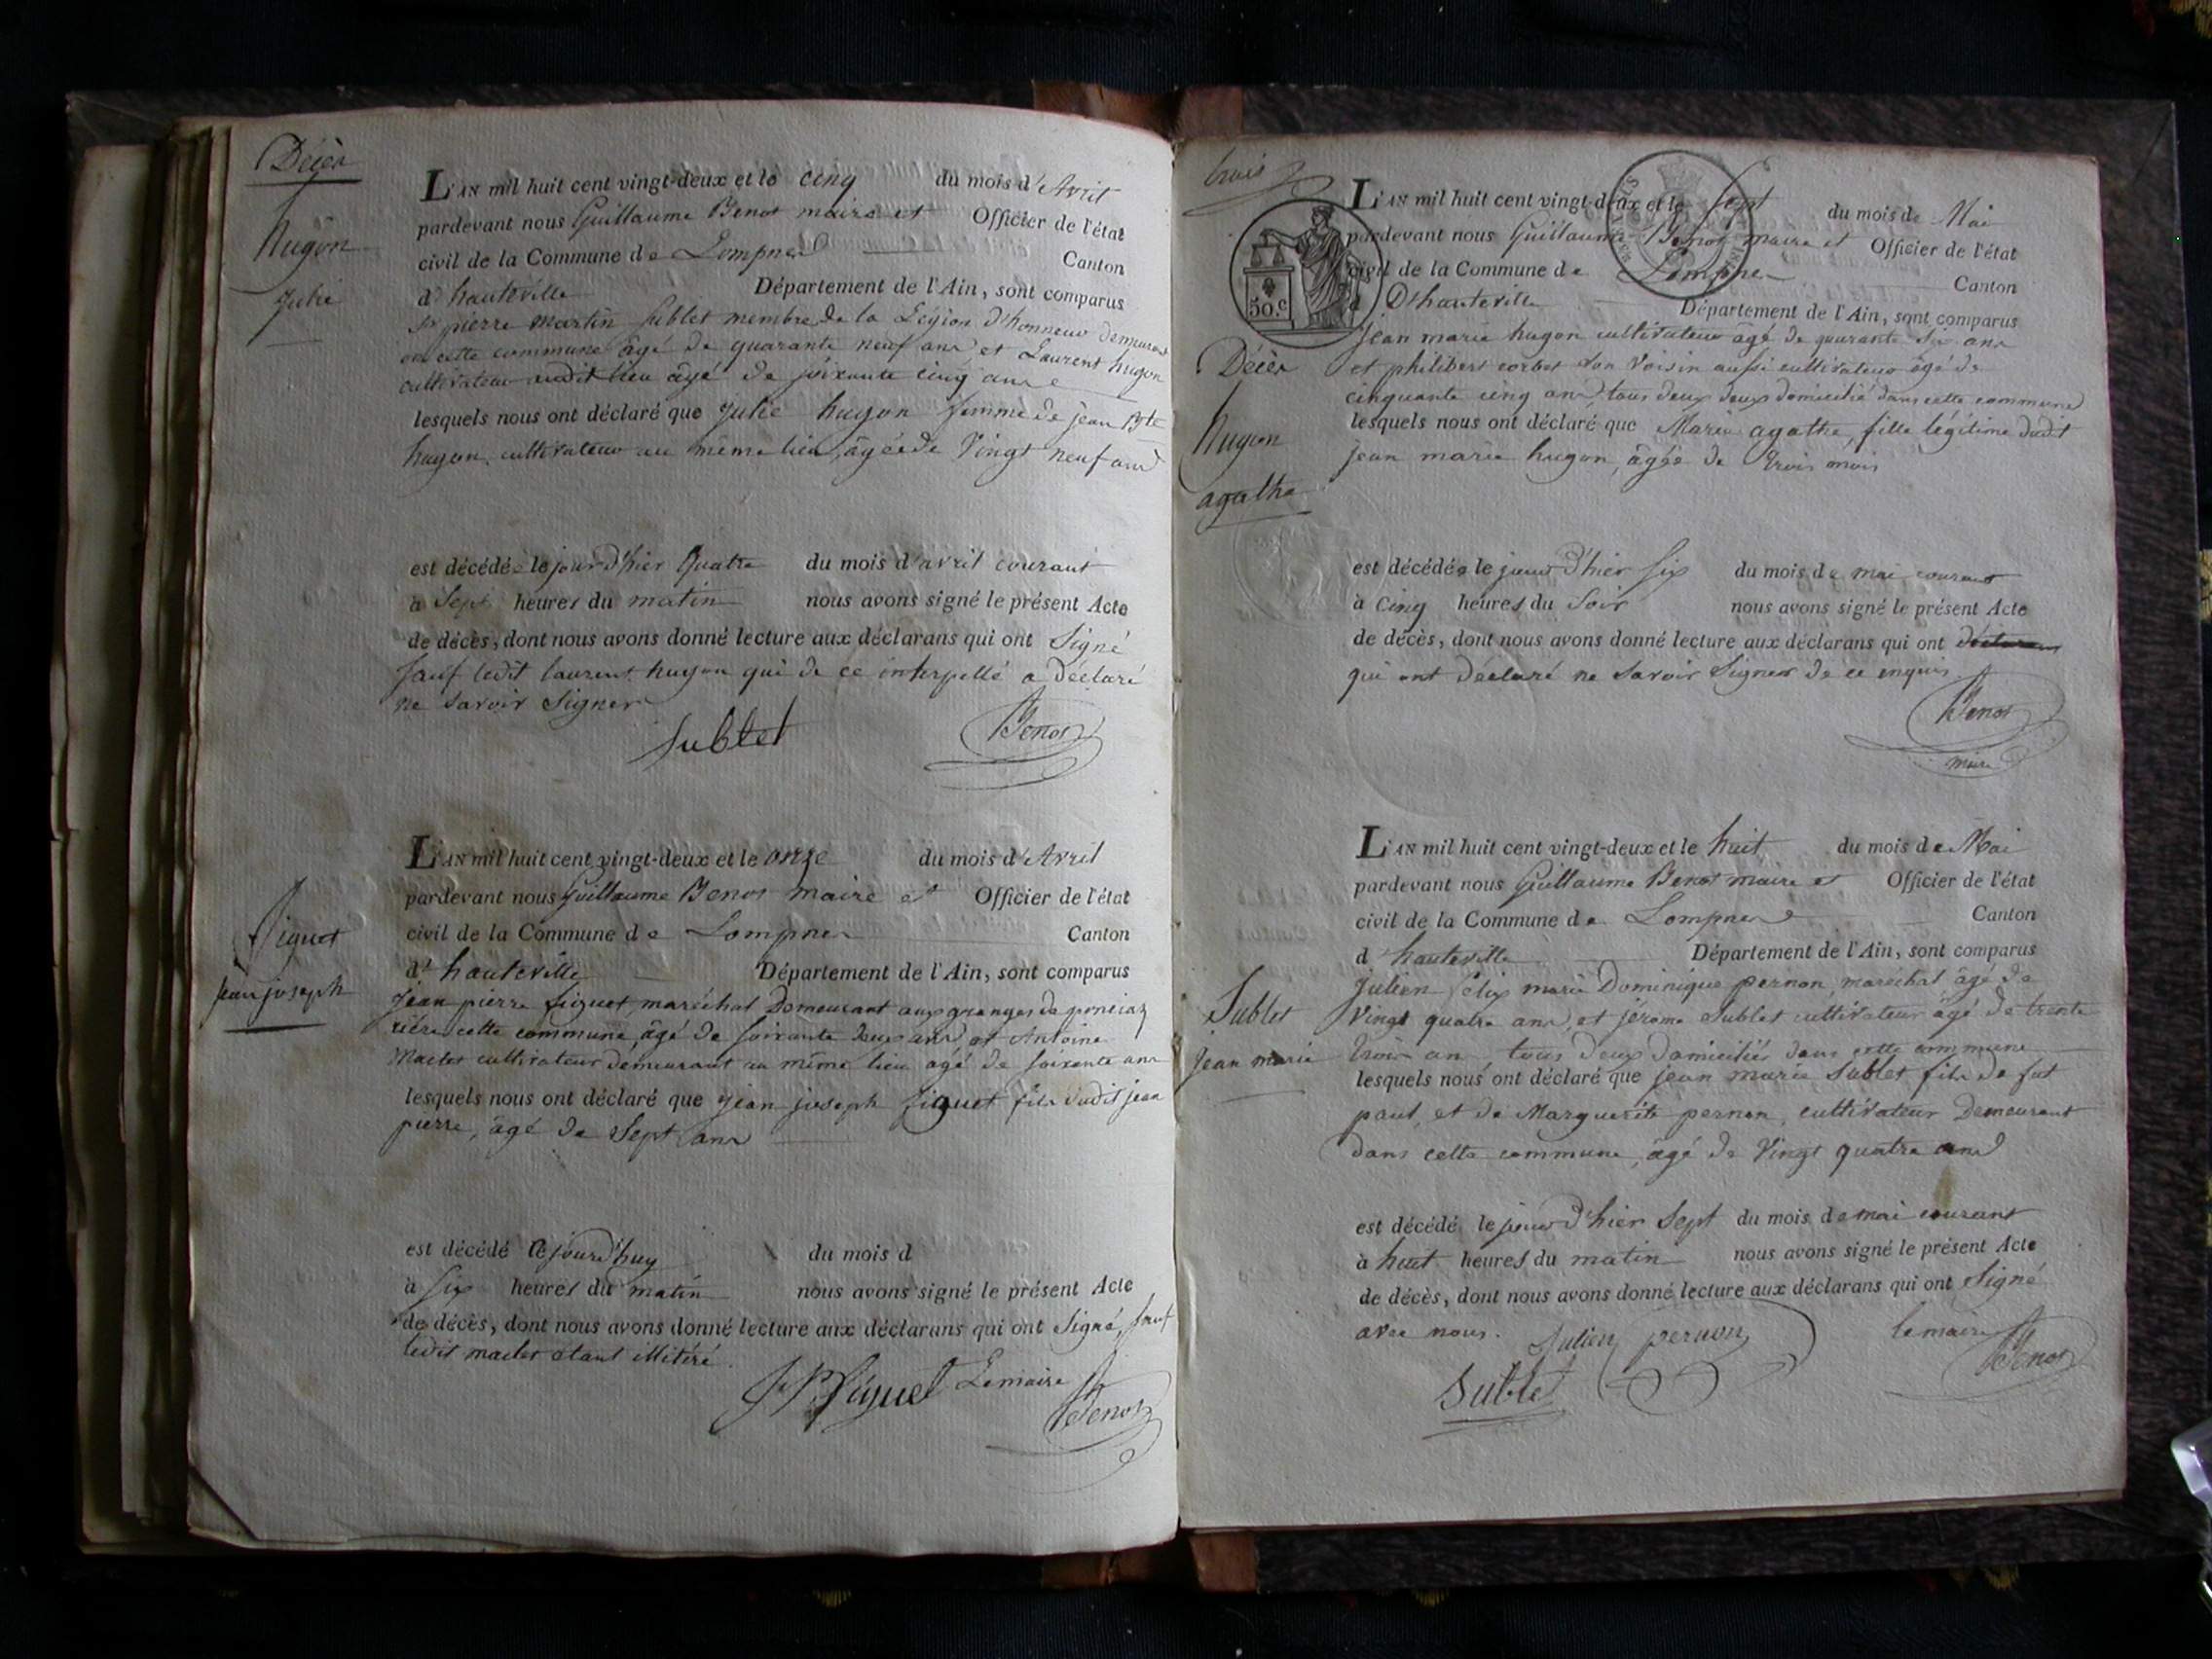 Décès
Hugon
Julie
L'AN mil huit cent vingt-deux et le cinq du mois d'Avril
pardevant nous Guillaume Benot maire et Officier de l'état
civil de la Commune de Lompnes Canton
d'hauteville Département de l'Ain, sont comparus
Sr pierre Martin Sublet membre de la Légion d'honneur demeurant
en cette commune âgé de quarante neuf ans et Laurent hugon
cultivateur audit lieu âgé de soixante cinq ans
lesquels nous ont déclaré que Julie hugon femme de jean Bte
hugon, cultivateur au même lieu, âgée de Vingt neuf ans
est décédée le jour d'hier Quatre du mois d'avril courant
à Sept heures du matin nous avons signé le présent Acte
de décès, dont nous avons donné lecture aux déclarans qui ont Signé
sauf ledit laurent hugon qui de ce interpellé a déclaré
ne savoir signer
Sublet Benot
figuet
jean joseph
L'AN mil huit cent vingt-deux et le onze du mois d'Avril
pardevant nous Guillaume Benot maire et Officier de l'état
civil de la Commune de Lompnes Canton
d'hauteville Département de l'Ain, sont comparus
jean pierre figuet maréchal Demeurant aux granges de ponciaz
rière cette commune, âgé de soixante deux ans et Antoine
Maclet cultivateur demeurant au même lieu âgé de soixante ans
lesquels nous ont déclaré que jean joseph figuet fils dudit jean
pierre, âgé de Sept ans
est décédé le jourd'huy du mois d
à six heures du matin nous avons signé le présent Acte
de décès, dont nous avons donné lecture aux déclarans qui ont Signé, sauf
ledit maclet etant illitéré.
J P figuet Le maire Benot
trois
50.c
Décès
Hugon
agathe
L'AN mil huit cent vingt-deux et le Sept du mois de Mai
pardevant nous Guillaume Benot maire et Officier de l'état
civil de la Commune de Lompnes Canton
d D'hauteville Département de l'Ain, sont comparus
jean marie hugon cultivateur âgé de quarante six ans
et philibert corbet son voisin aussi cultivateur âgé de
cinquante cinq ans, tous deux deux domicilié dans cette commune
lesquels nous ont déclaré que Marie agathe, fille légitime dudit
jean marie hugon, âgée de trois mois
est décédée le jour d'hier six du mois de mai courant
à cinq heures du soir nous avons signé le présent Acte
de décès, dont nous avons donné lecture aux déclarans qui ont
qui ont déclaré ne savoir signer de ce enquis
Benot
maire
Sublet
Jean marie
L'AN mil huit cent vingt-deux et le huit du mois de Mai
pardevant nous Guillaume Benot maire et Officier de l'état
civil de la Commune de Lompnes Canton
d hauteville Département de l'Ain, sont comparus
julien félix marie Dominique pernon, maréchal âgé de
vingt quatre ans, et jérome Sublet cultivateur âgé de trente
trois an tous deux domiciliés dans cette commune
lesquels nous ont déclaré que jean marie Sublet fils de fut
paul, et de Marguerite pernon, cultivateur Demeurant
dans cette commune, âgé de Vingt quatre ans
est décédé le jour d'hier Sept du mois de mai courant
à huit heures du matin nous avons signé le présent Acte
de décès, dont nous avons donné lecture aux déclarans qui ont Signé
avec nous. Julien pernon le maire Benot
Sublet